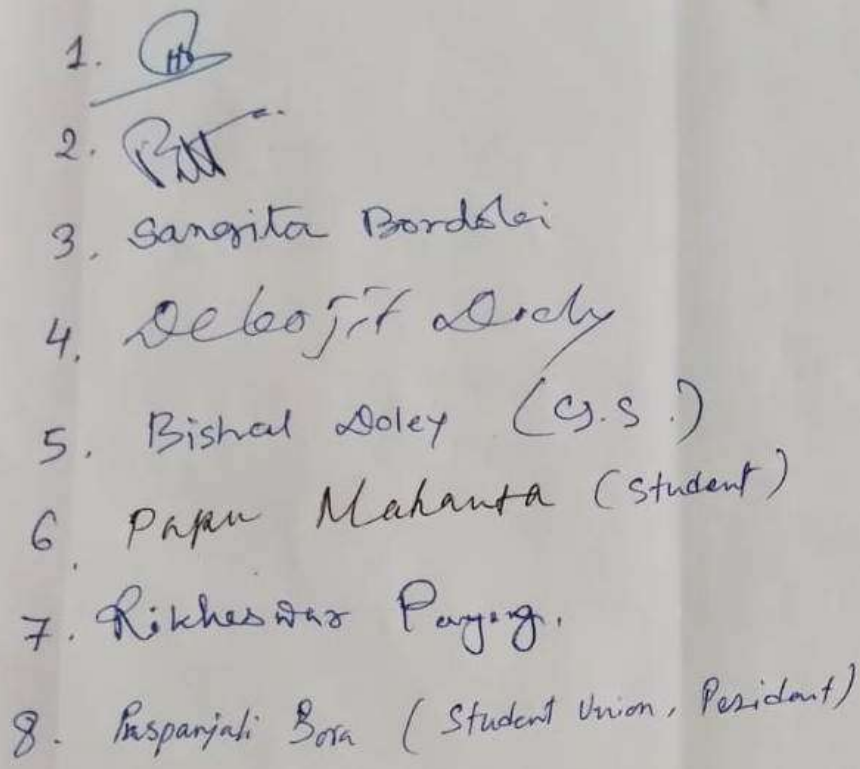 1.
2.
3. Sangita Bordoloi
4. Debojit
5. Bishal Doley (G.S.)
6. Papu Mahanta (Student)
7. Rikheswar Payeng.
8. Puspanjali Bora (Student Union, Pesident)